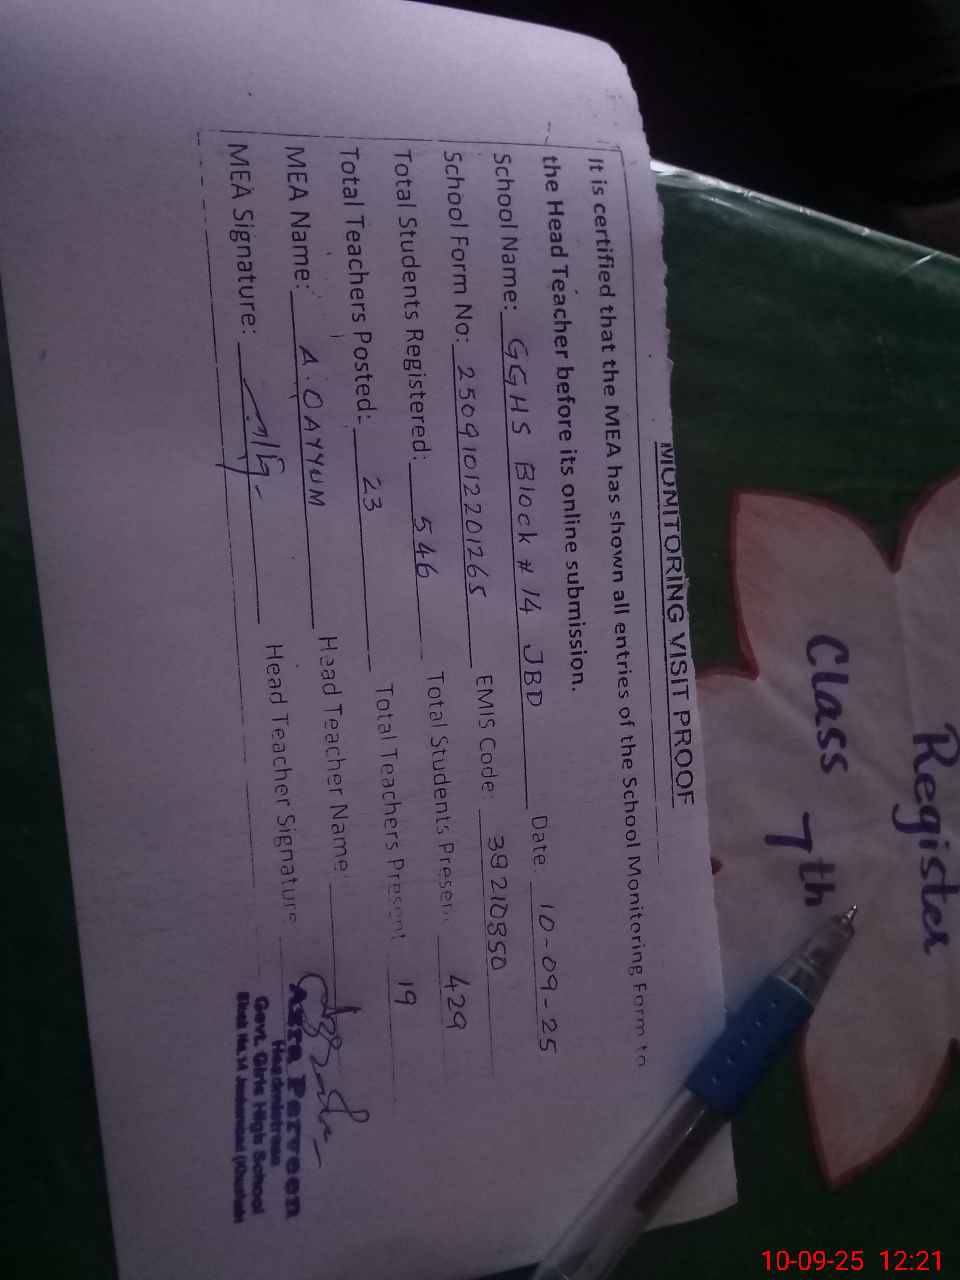 MONITORING VISIT PROOF
It is certified that the MEA has shown all entries of the School Monitoring Form to
the Head Teacher before its online submission.
School Name: GGHS Block # 14 JBD Date 10-09-25
School Form No: 2509101220 1265 EMIS Code: 39210350
Total Students Registered: 546 Total Students Present 429
Total Teachers Posted: 23 Total Teachers Present 19
MEA Name: A.QAYYUM Head Teacher Name
MEA Signature: Head Teacher Signature
Azra Parveen
Headmistress
Govt. Girls High School
Block No.14 Jauharabad (Khushab)
Register
Class 7th
10-09-25 12:21